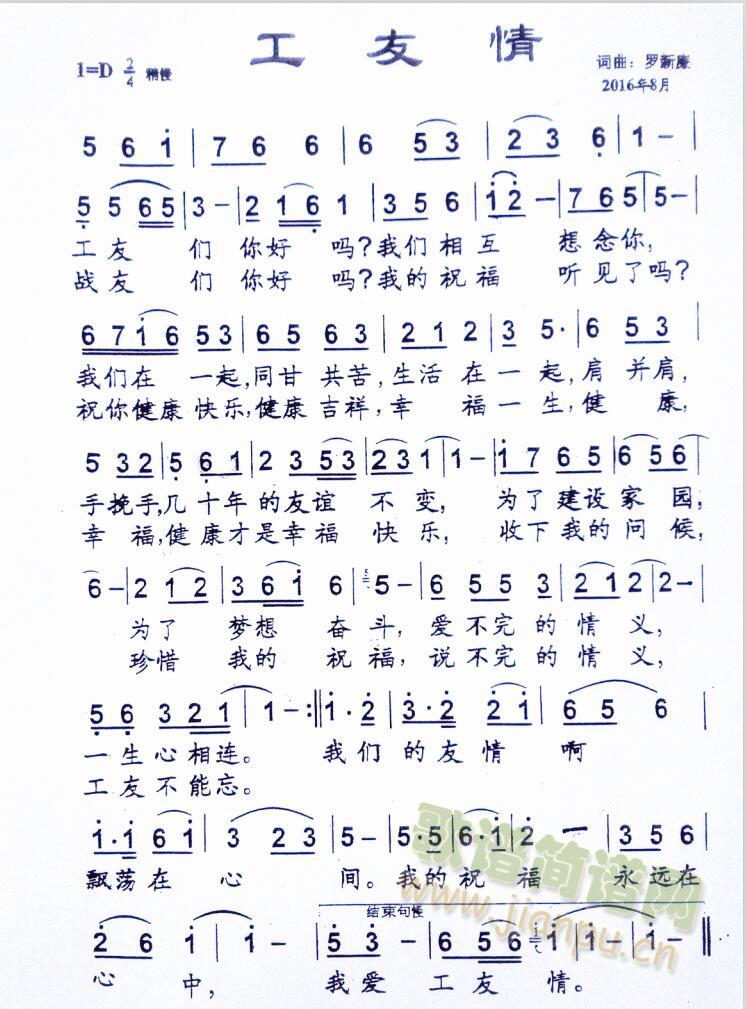 工友情
1=D 2/4 稍慢
词曲：罗新廉
2016年8月
5 6 i | 7 6 6 | 6 5 3 | 2 3 6 | 1 - |
5 5 6 5 | 3 - | 2 1 6 1 | 3 5 6 | i 2 - | 7 6 5 | 5 - |
工友 们 你好 吗？我们相互 想念你，
战友 们 你好 吗？我的祝福 听见了吗？
6 7 i 6 5 3 | 6 5 6 3 | 2 1 2 | 3 5 · | 6 5 3 |
我们在 一起，同甘 共苦，生活 在 一 起，肩 并肩，
祝你健康 快乐，健康 吉祥，幸 福 一 生，健 康，
5 3 2 | 5 6 1 | 2 3 5 3 | 2 3 1 | 1 - | i 7 6 5 | 6 5 6 |
手挽手，几十年的友谊 不 变， 为了建设家 园，
幸 福，健康才是幸福 快 乐， 收下我的问 候，
6 - | 2 1 2 | 3 6 i 6 | 5 - | 6 5 5 3 | 2 1 2 | 2 - |
为了 梦想 奋斗，爱不完的情 义，
珍惜 我的 祝福，说不完的情 义，
5 6 3 2 1 | 1 - :|| i · 2 | 3 · 2 2 i | 6 5 6 |
一生心相连。 我们的友情 啊
工友不能忘。
i · i 6 i | 3 2 3 | 5 - | 5 · 5 | 6 · i | 2 - | 3 5 6 |
飘荡在 心 间。我的祝 福 永远在
结束句慢
2 6 i | i - | 5 3 · | 6 5 6 | i · i | i - ||
心 中， 我爱 工友 情。
歌谱简谱网
www.jianpu.cn